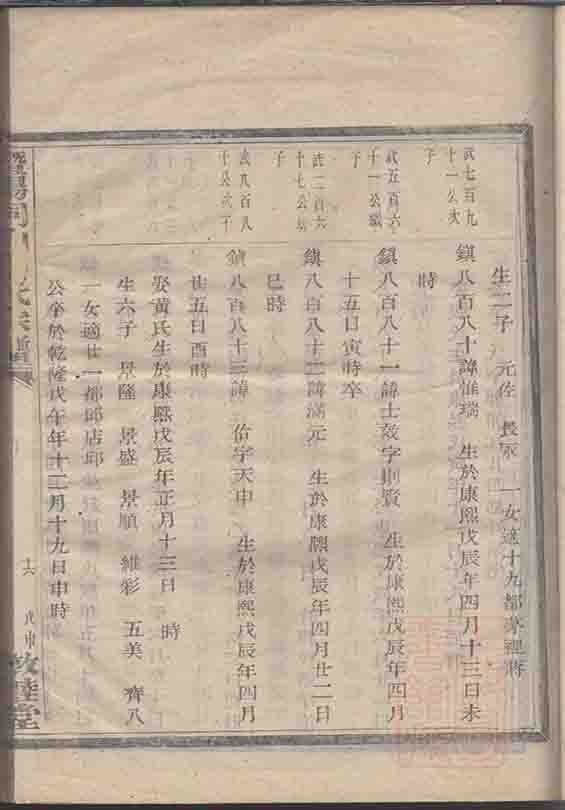 生二子 元佐 長 一女適十九都
武七百九
十一公次
子
鎮八百八十諱惟瑞 生於康熙戊辰年四月十三日未
時
武五百六
十一公
子
鎮八百八十一諱士效字則賢 生於康熙戊辰年四月
十五日寅時卒
武二百六
十七公
子
鎮八百八十二諱滿元 生於康熙戊辰年四月廿二日
巳時
武八百八
十公次子
鎮八百八十三諱 佁字天申 生於康熙戊辰年四月
廿五日酉時
娶黃氏生於康熙戊辰年正月十三日 時
生六子 景隆 景盛 景順 維彩 五美 齊八
一女適廿一都邱店邱
公卒於乾隆戊午年十二月十九日申時
陽 氏宗譜
十六
戊申
敦睦堂